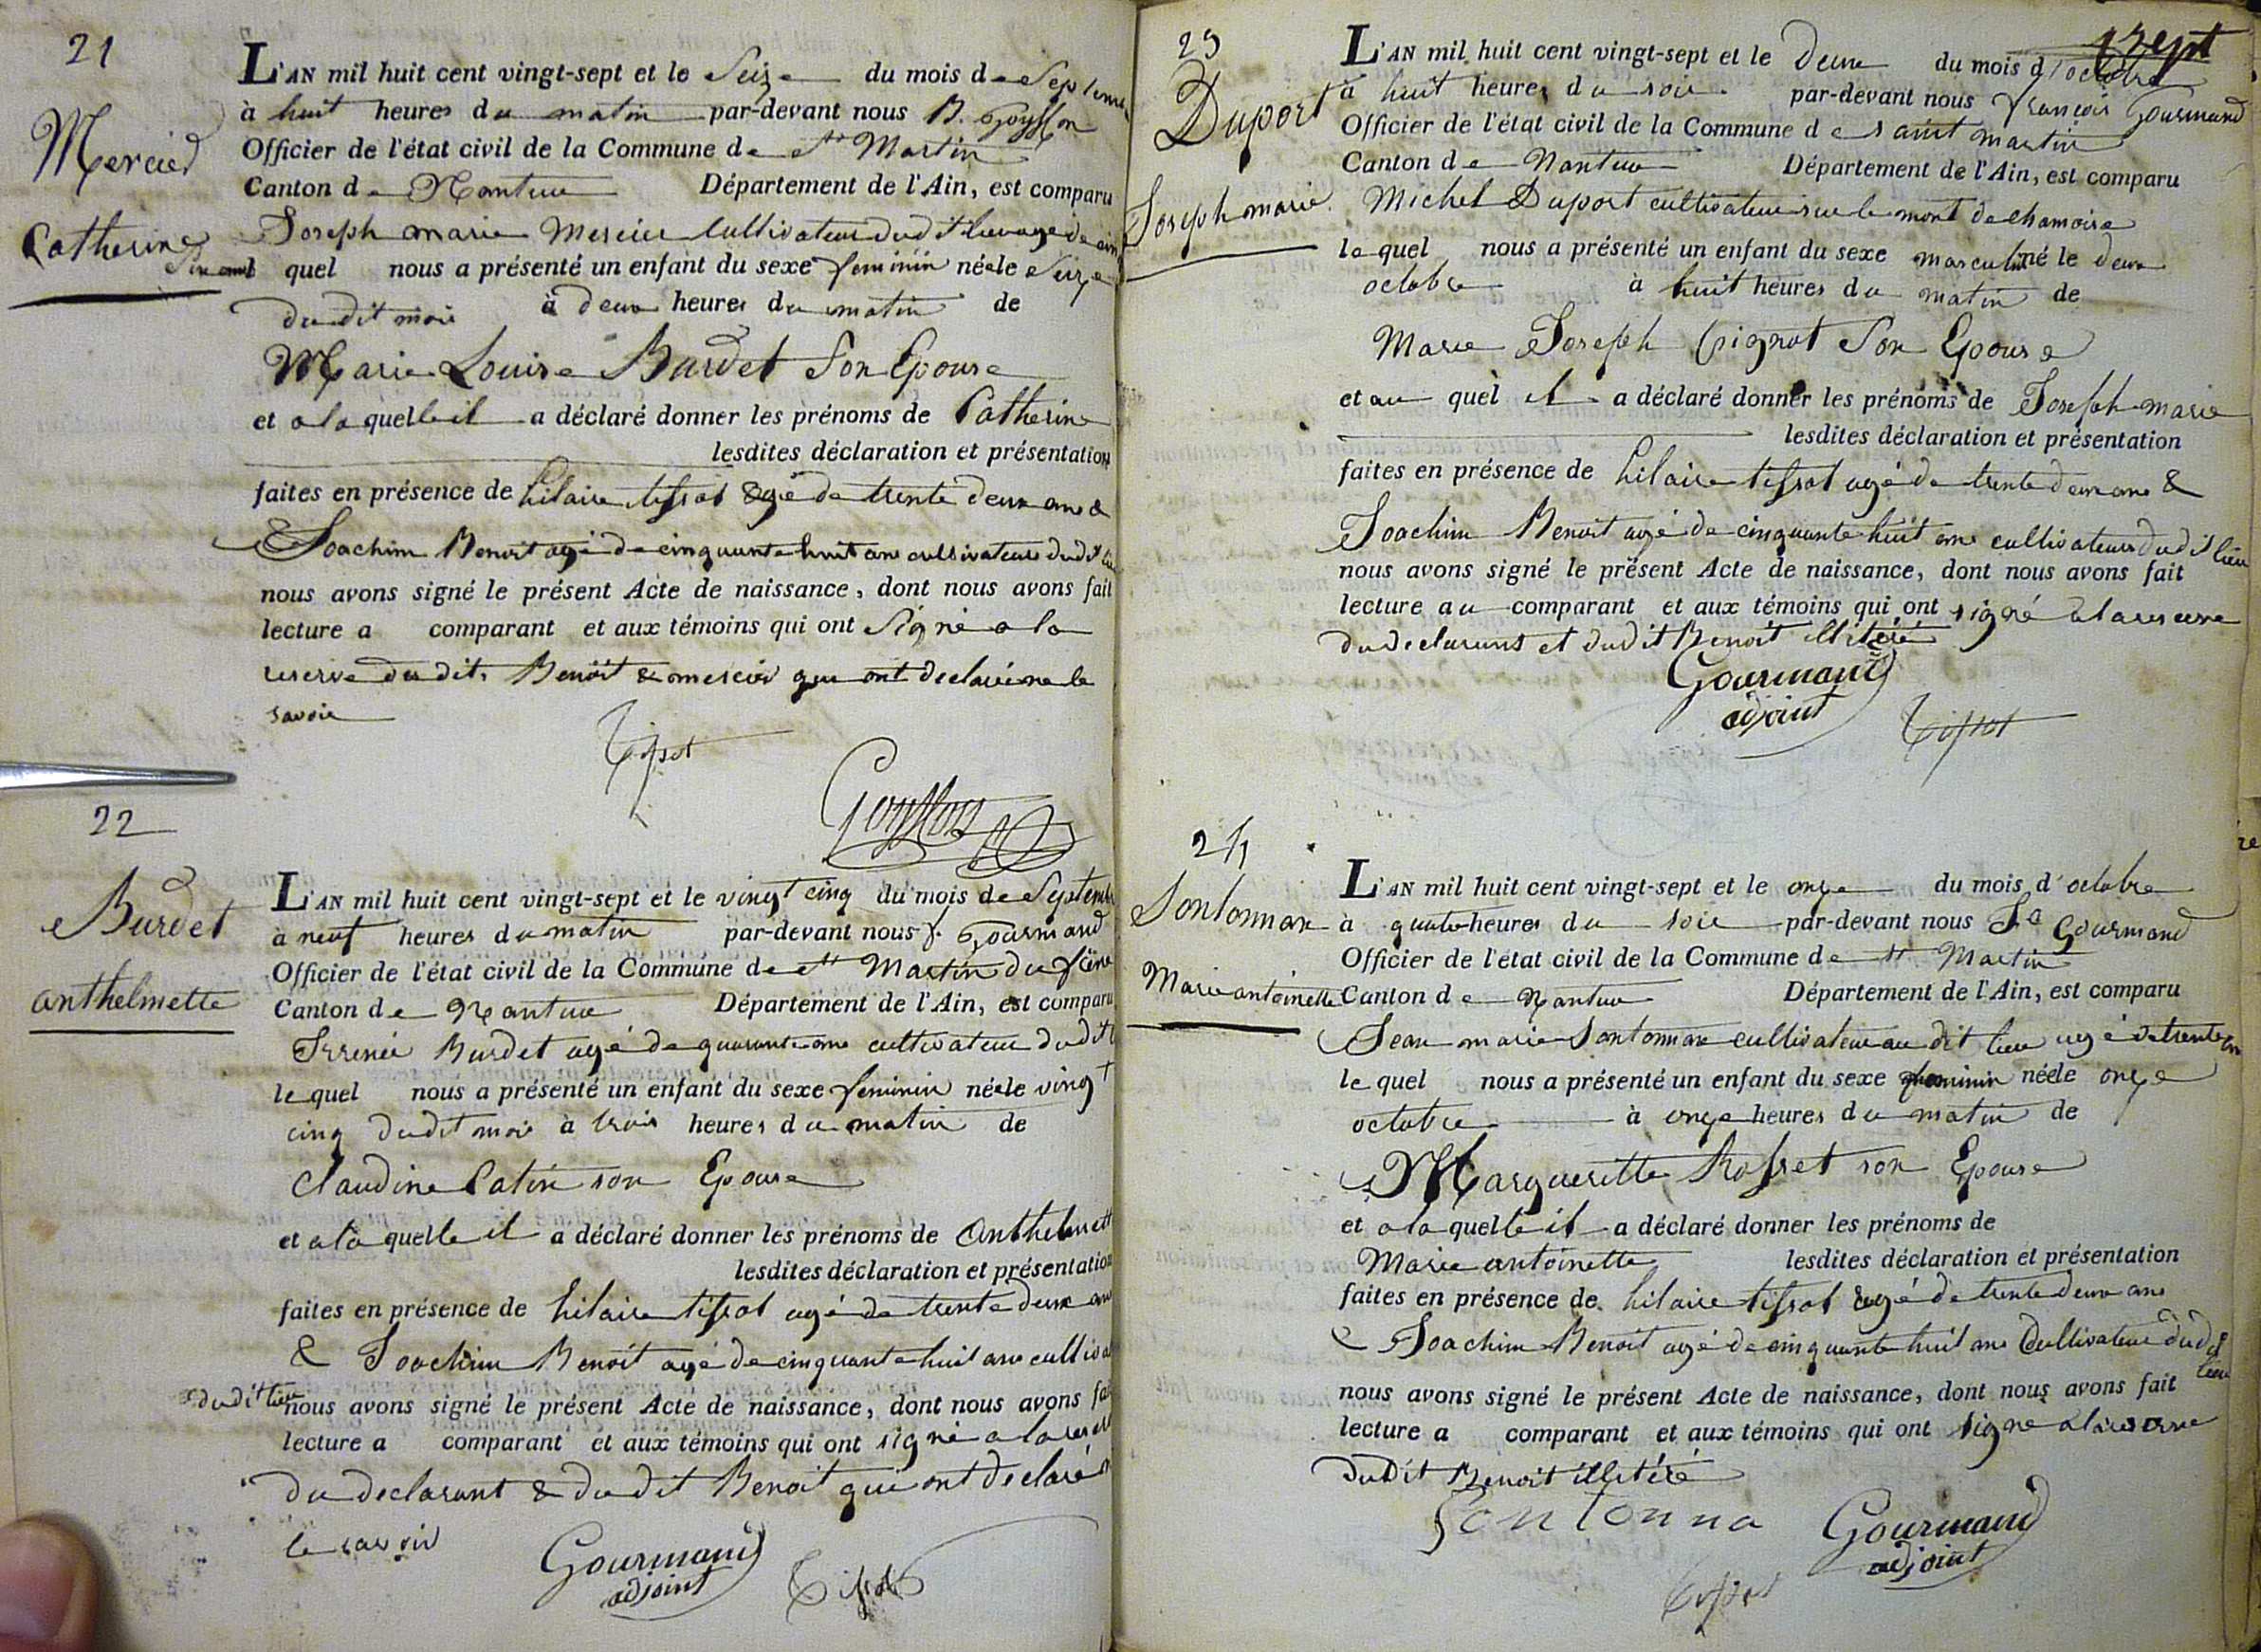 21
Mercier
Catherine
L'AN mil huit cent vingt-sept et le Seize du mois de Septembre
à huit heures du matin par-devant nous B. Goyffon
Officier de l'état civil de la Commune de st Martin
Canton de Nantua Département de l'Ain, est comparu
Joseph marie Mercier Cultivateur dudit lieu agé de
quel nous a présenté un enfant du sexe feminin née le Seize
dudit mois à deux heures du matin de
Marie Louise Burdet Son Epouse
et a la quelle il a déclaré donner les prénoms de Catherine
lesdites déclaration et présentation
faites en présence de hilaire tissot agé de trente deux ans &
& Joachim Benoit agé de cinquante huit ans cultivateurs dudit lieu
nous avons signé le présent Acte de naissance, dont nous avons fait
lecture a comparant et aux témoins qui ont Signé a la
reserve dudit Benoit & mercier qui ont declaré ne le
savoir
Tissot
Goyffon
22
Burdet
anthelmette
L'AN mil huit cent vingt-sept et le vingt cinq du mois de Septembre
à neuf heures du matin par-devant nous f. Gourmand
Officier de l'état civil de la Commune de st Martin du frêne
Canton de Nantua Département de l'Ain, est comparu
Irrenée Burdet agé de quarante ans cultivateur dudit
le quel nous a présenté un enfant du sexe feminin née le vingt
cinq dudit mois à trois heures du matin de
Claudine Catin son Epouse
et a la quelle il a déclaré donner les prénoms de Anthelmette
lesdites déclaration et présentation
faites en présence de hilaire tissot agé de trente deux ans
& Joachim Benoit agé de cinquante huit ans cultiva
dudit lieu nous avons signé le présent Acte de naissance, dont nous avons fait
lecture a comparant et aux témoins qui ont signé a la reserve
du declarant & dudit Benoit qui ont declaré
le savoir
Gourmand
adjoint
Tissot
23
Duport
Joseph marie
L'AN mil huit cent vingt-sept et le deux du mois d'octobre
à huit heures du soir par-devant nous françois Gourmand
Officier de l'état civil de la Commune de saint martin
Canton de Nantua Département de l'Ain, est comparu
Michel Duport cultivateur sur le mont de chamoise
le quel nous a présenté un enfant du sexe masculin né le deux
octobre à huit heures du matin de
Marie Joseph Pignot Son Epouse
et au quel il a déclaré donner les prénoms de Joseph marie
lesdites déclaration et présentation
faites en présence de hilaire tissot agé de trente deux ans &
Joachim Benoit agé de cinquante huit ans cultivateurs dudit lieu
nous avons signé le présent Acte de naissance, dont nous avons fait
lecture au comparant et aux témoins qui ont signé a la reserve
du declarant et dudit Benoit illitéré
Gourmand
adjoint
Tissot
24
Sontonnax
Marie antoinette
L'AN mil huit cent vingt-sept et le onze du mois d'octobre
à quatre heures du soir par-devant nous Gourmand
Officier de l'état civil de la Commune de st Martin
Canton de Nantua Département de l'Ain, est comparu
Jean marie Sontonnax cultivateur au dit lieu agé de trente
le quel nous a présenté un enfant du sexe feminin née le onze
octobre à onze heures du matin de
Margueritte Rosset son Epouse
et a la quelle il a déclaré donner les prénoms de
Marie antoinette lesdites déclaration et présentation
faites en présence de hilaire tissot agé de trente deux ans
& Joachim Benoit agé de cinquante huit ans Cultivateur dudit lieu
nous avons signé le présent Acte de naissance, dont nous avons fait
lecture a comparant et aux témoins qui ont signé a la reserve
dudit Benoit illitéré
Sontonna
Gourmand
adjoint
Tissot